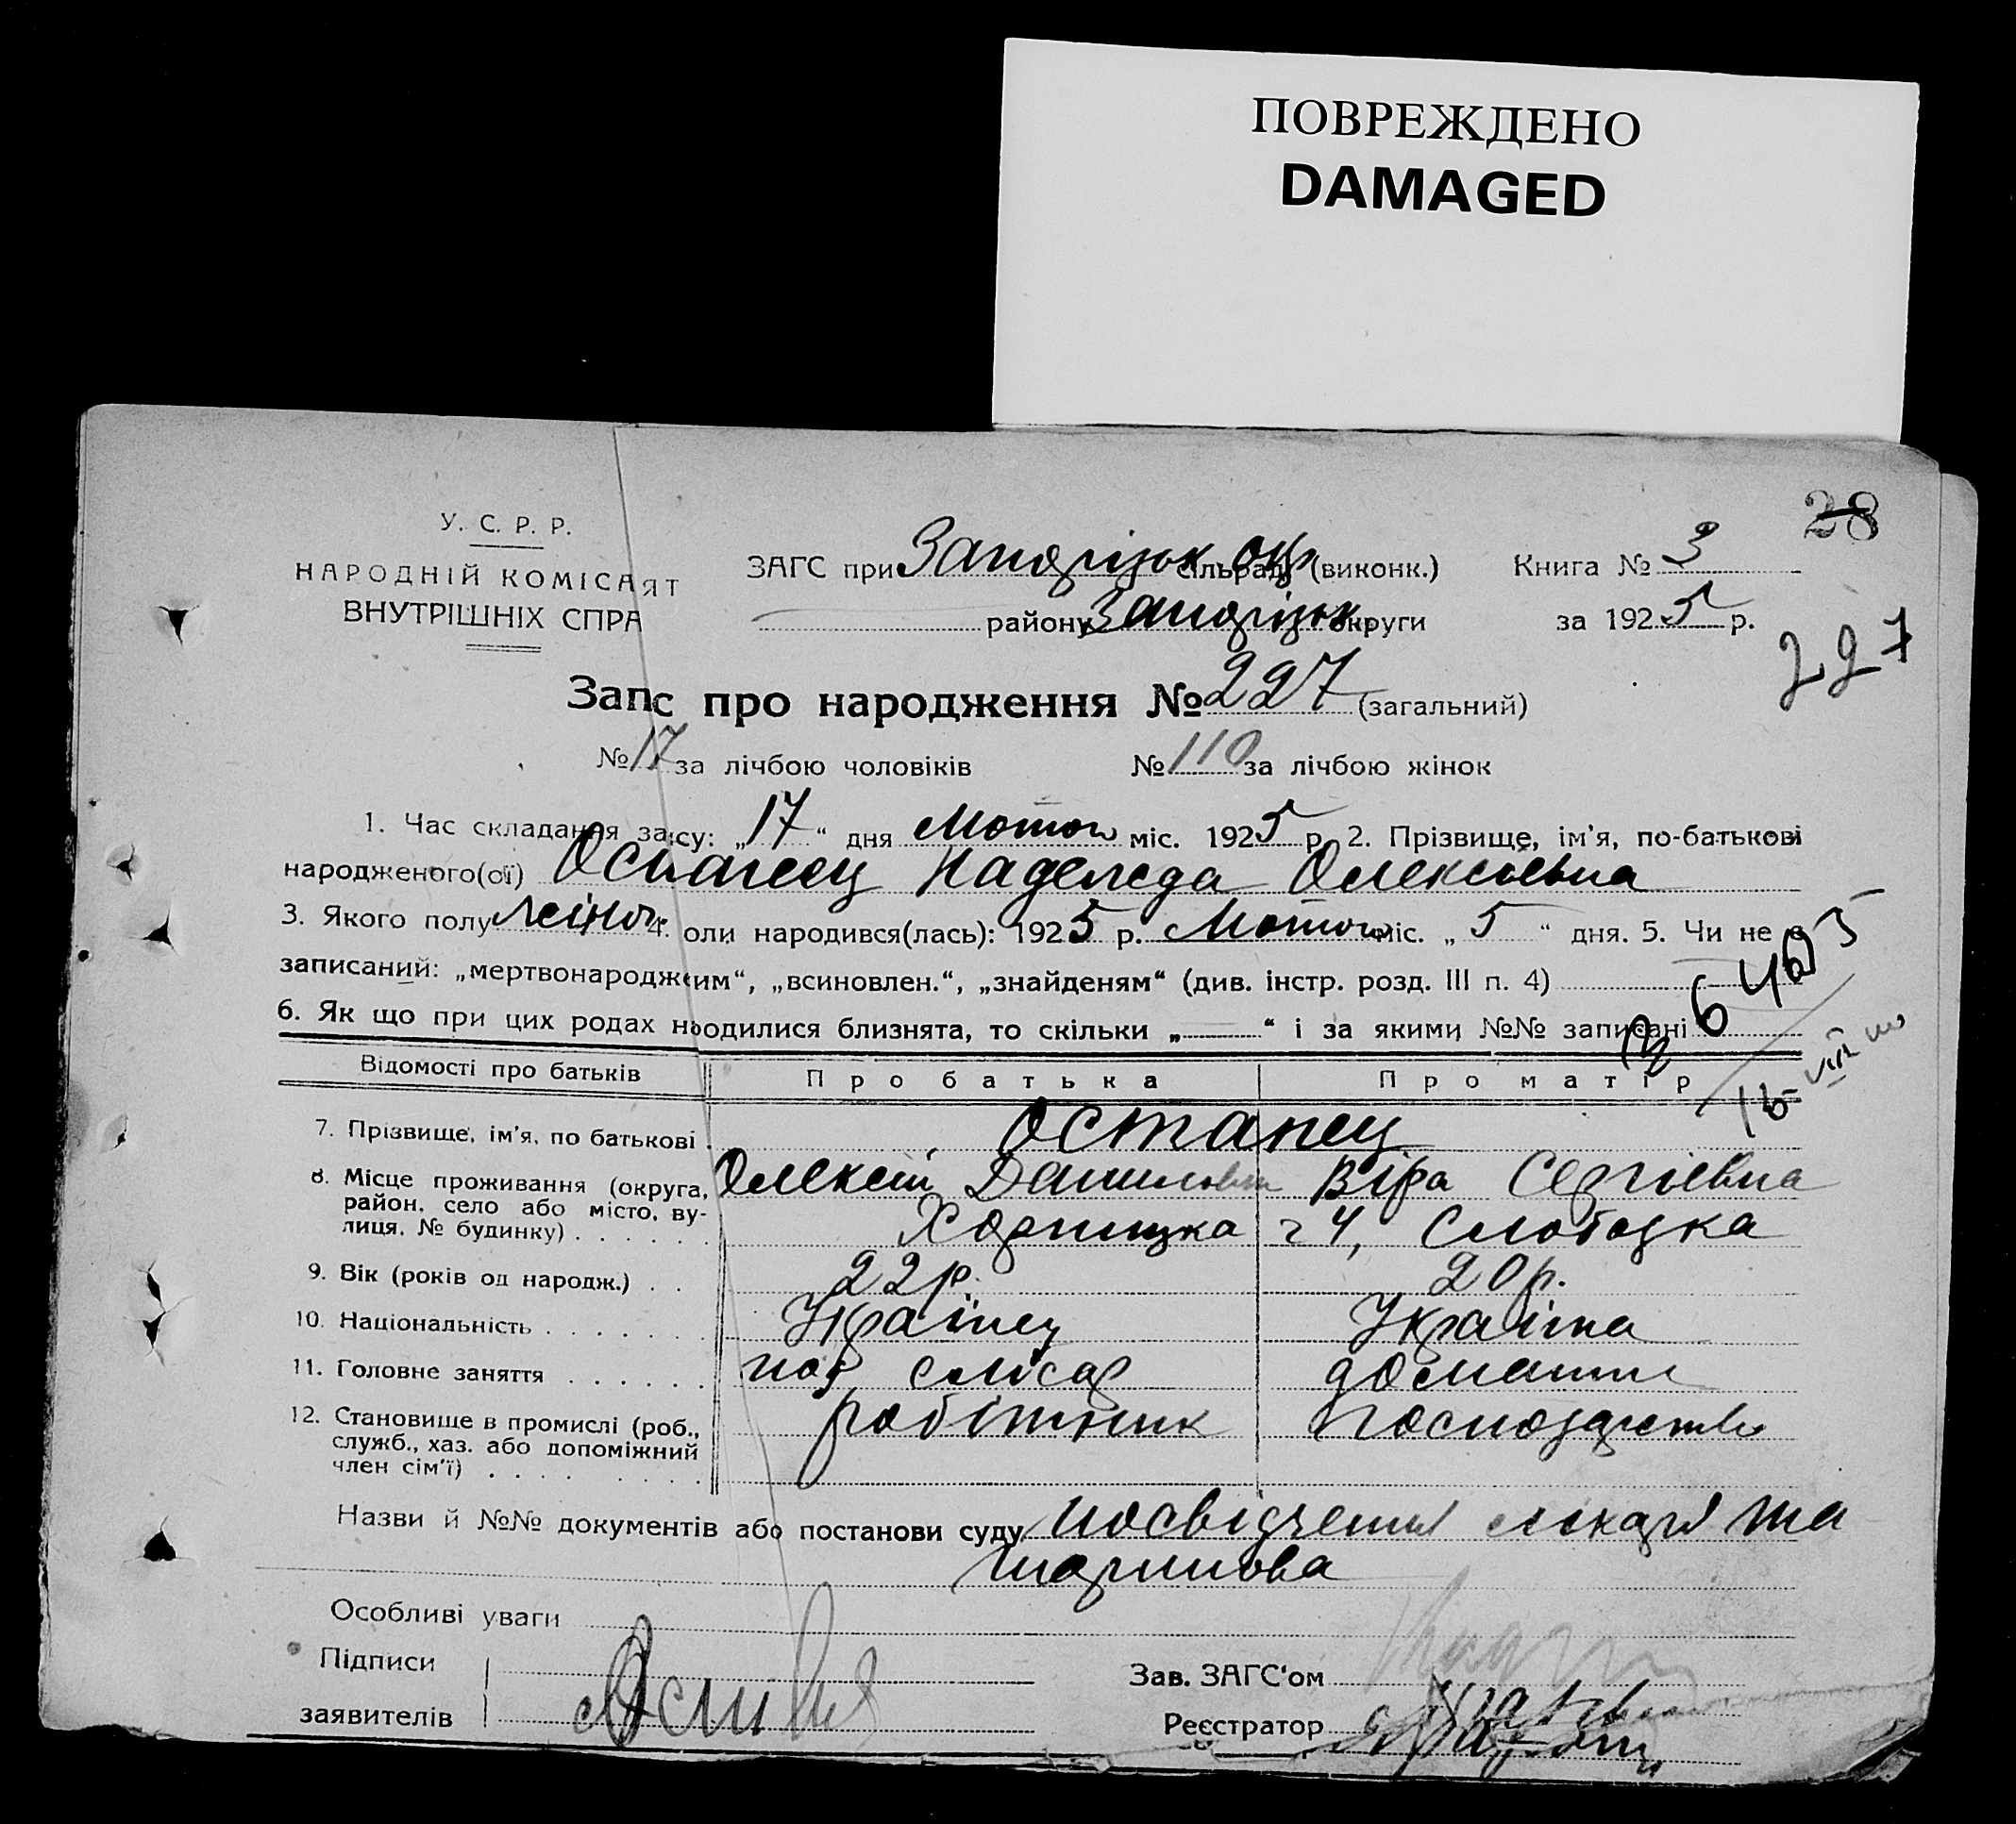 ПОВРЕЖДЕНО
DAMAGED
28
У. С. Р. Р.
НАРОДНІЙ КОМІСАЯТ
ВНУТРІШНІХ СПРА
ЗАГС при Запоріжськ окр сільраді (виконк.) Книга № 3
району Запоріжськ округи за 1925 р.
227
Запс про народження № 227 (загальний)
№ 17 за лічбою чоловіків № 110 за лічбою жінок
1. Час складання засу: „17“ дня Лютого міс. 1925 р. 2. Прізвище, ім'я, по-батькові
народженого(ої) Остапец Надежда Олексіевна
3. Якого полу жіноч. 4. оли народився(лась): 1925 р. Лютого міс. „5“ дня. 5. Чи не є
записаний: „мертвонароджєим“, „всиновлен.“, „знайденям“ (див. інстр. розд. III п. 4)
6. Як що при цих родах ноодилися близнята, то скільки „—“ і за якими №№ записані
Відомості про батьків Про батька Про матір
7. Прізвище, ім'я, по батькові . Остапец
Олексій Данилович Віра Сергіевна
8. Місце проживання (округа, район, село або місто, ву-
лиця, № будинку) . . . . . . Хортицка ч 4, Слободка
9. Вік (років од народж.) . . 22 р. 20 р.
10. Національність . . . . . . . Українец Українка
11. Головне заняття . . . . . . слюсар домашнє
12. Становище в промислі (роб., робітник господарство
служб., хаз. або допоміжний
член сім'ї) . . . . . . . .
Назви й №№ документів або постанови суду посвідчення лікаря та
Особливі уваги
Підписи Зав. ЗАГС'ом
заявителів Реєстратор